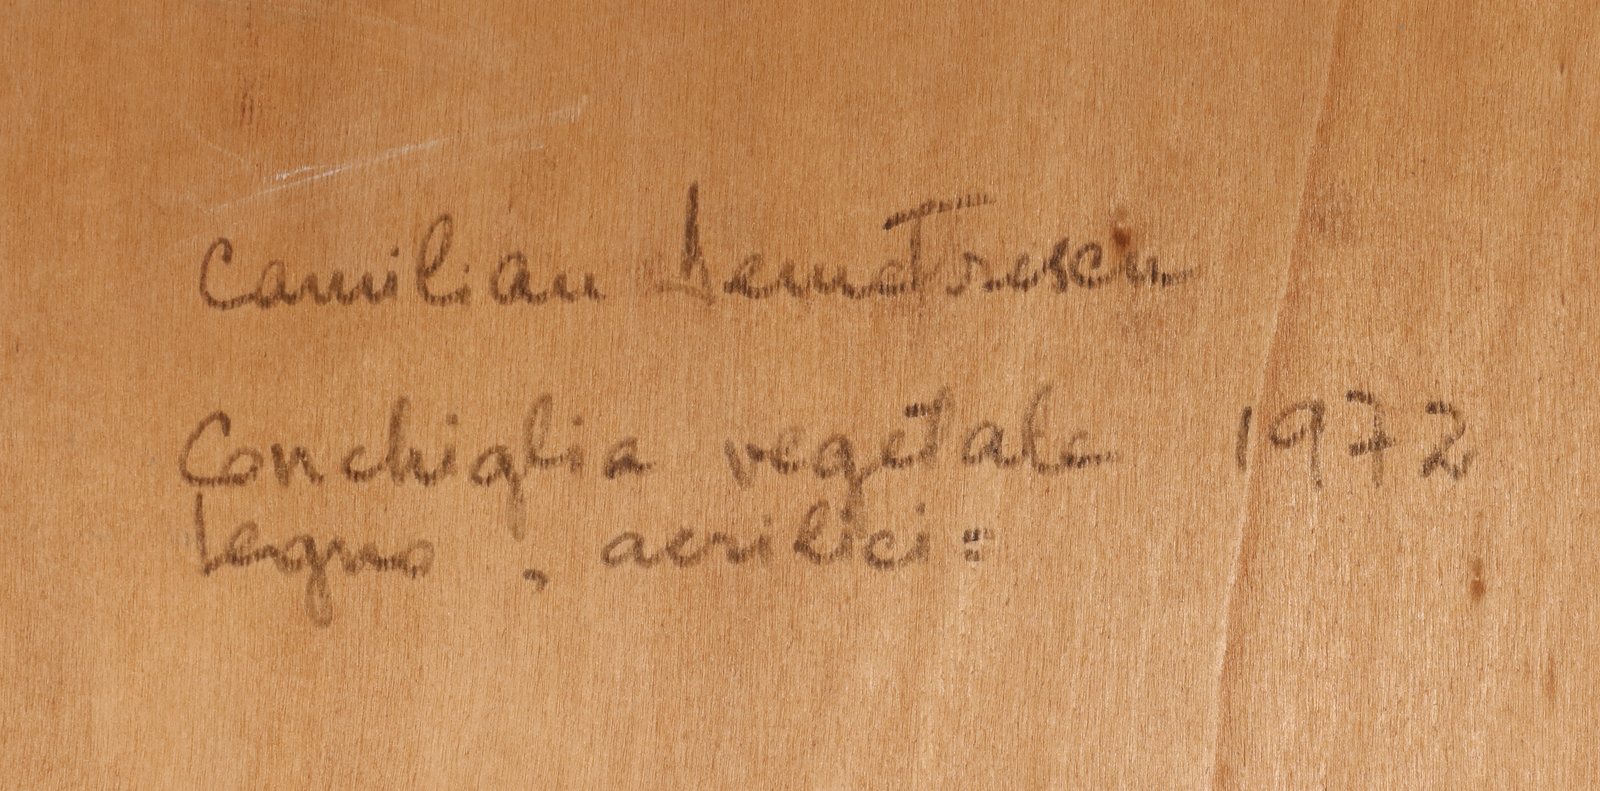 Camilian Demetrescu
Conchiglia vegetale 1972
legno, acrilici =